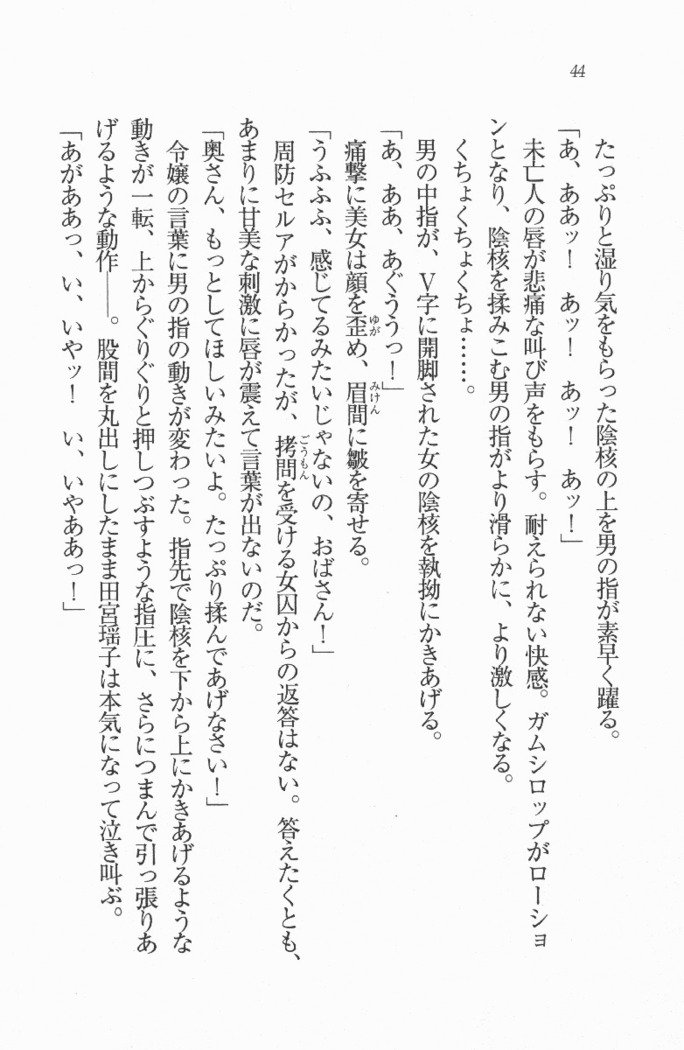 44
たっぷりと湿り気をもらった陰核の上を男の指が素早く躍る。
「あ、ああッ！　あッ！　あッ！　あッ！」
未亡人の唇が悲痛な叫び声をもらす。耐えられない快感。ガムシロップがローショ
ンとなり、陰核を揉みこむ男の指がより滑らかに、より激しくなる。
くちょくちょくちょ……。
男の中指が、Ｖ字に開脚された女の陰核を執拗にかきあげる。
「あ、ああ、あぐううっ！」
痛撃に美女は顔を歪（ゆが）め、眉間（みけん）に皺を寄せる。
「うふふふ、感じてるみたいじゃないの、おばさん！」
周防セルアがからかったが、拷問（ごうもん）を受ける女囚からの返答はない。答えたくとも、
あまりに甘美な刺激に唇が震えて言葉が出ないのだ。
「奥さん、もっとしてほしいみたいよ。たっぷり揉んであげなさい！」
令嬢の言葉に男の指の動きが変わった。指先で陰核を下から上にかきあげるような
動きが一転、上からぐりぐりと押しつぶすような指圧に、さらにつまんで引っ張りあ
げるような動作――。股間を丸出しにしたまま田宮瑶子は本気になって泣き叫ぶ。
「あがああっ、い、いやッ！　い、いやああっ！」